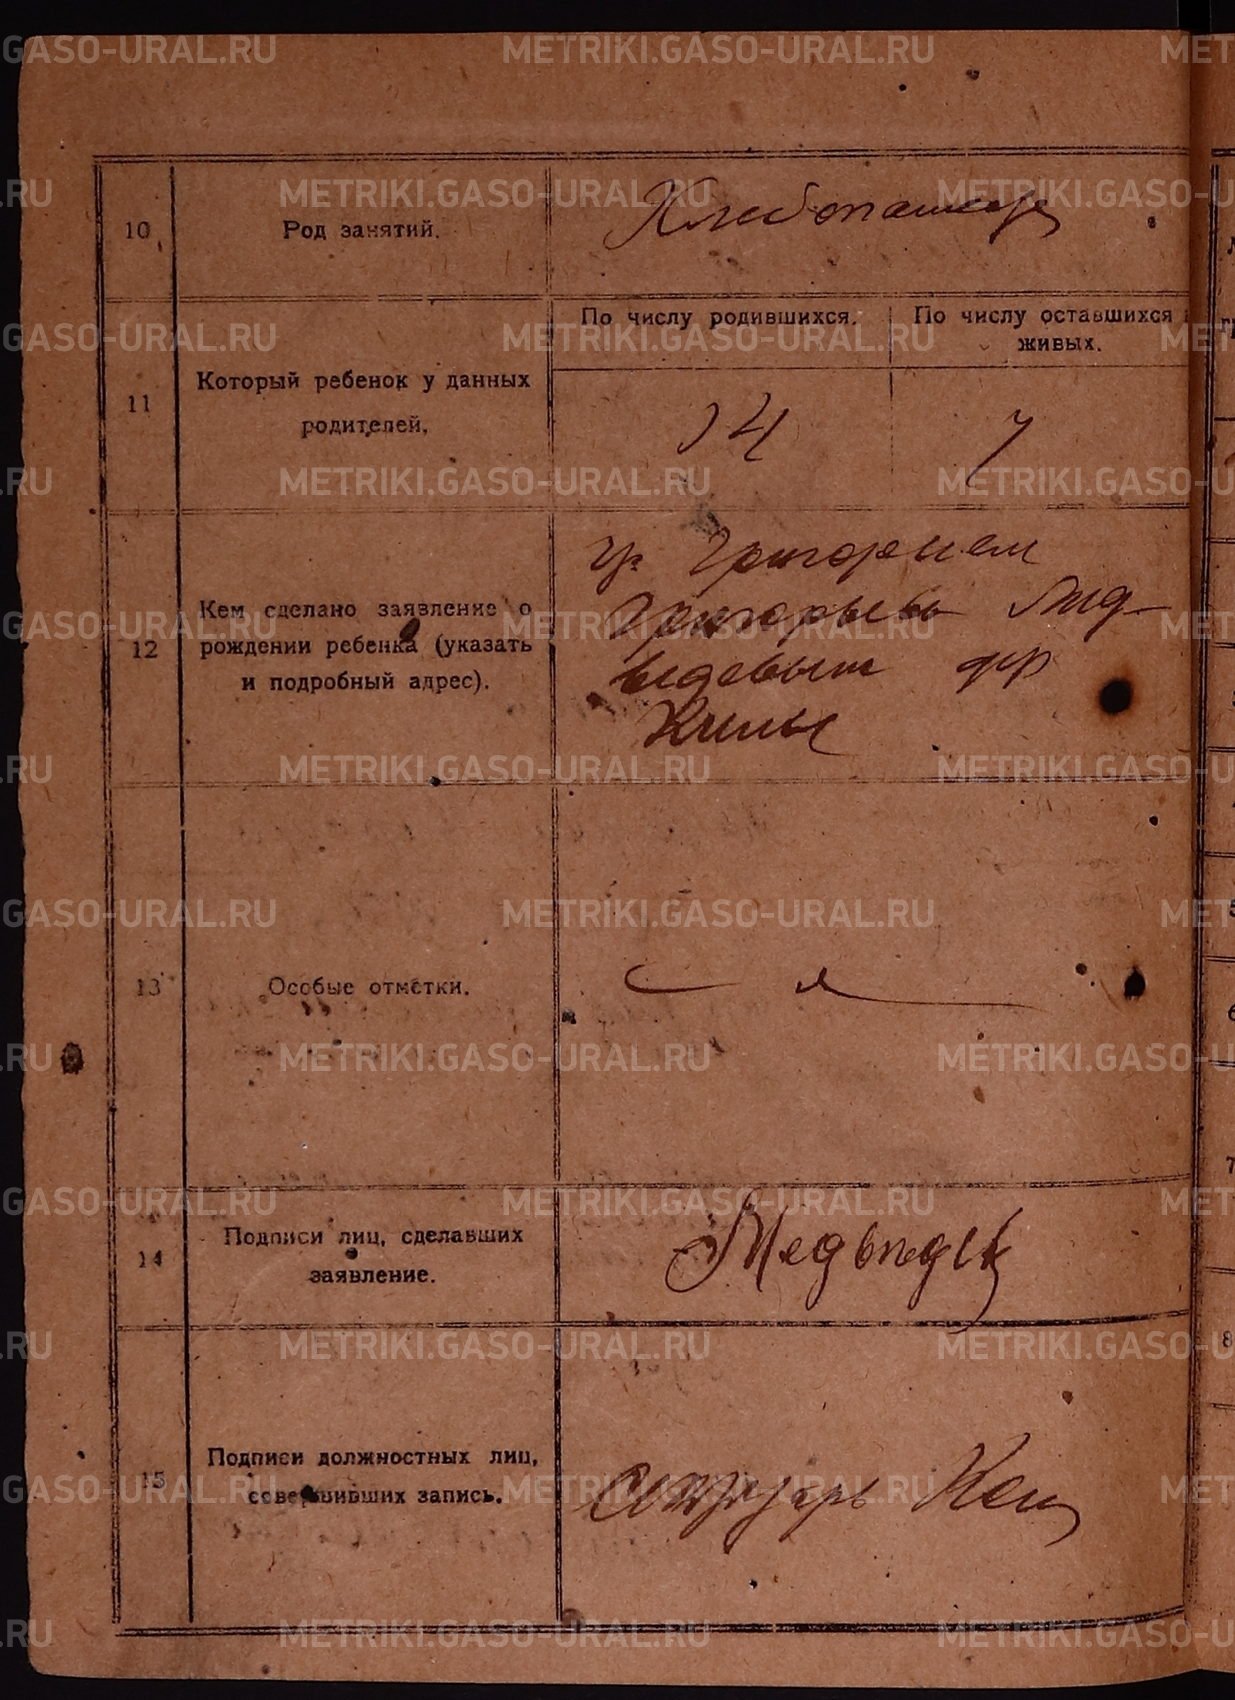 METRIKI.GASO-URAL.RU
10
Род занятий.
Хлебопашец
11
Который ребенок у данных
родителей.
По числу родившихся.
По числу оставшихся
живых.
14
7
12
Кем сделано заявление о
рождении ребенка (указать
и подробный адрес).
гр. Григорием
Григорьевы Мед
ведевым
13
Особые отметки.
14
Подписи лиц, сделавших
заявление.
15
Подписи должностных лиц,
совершивших запись.